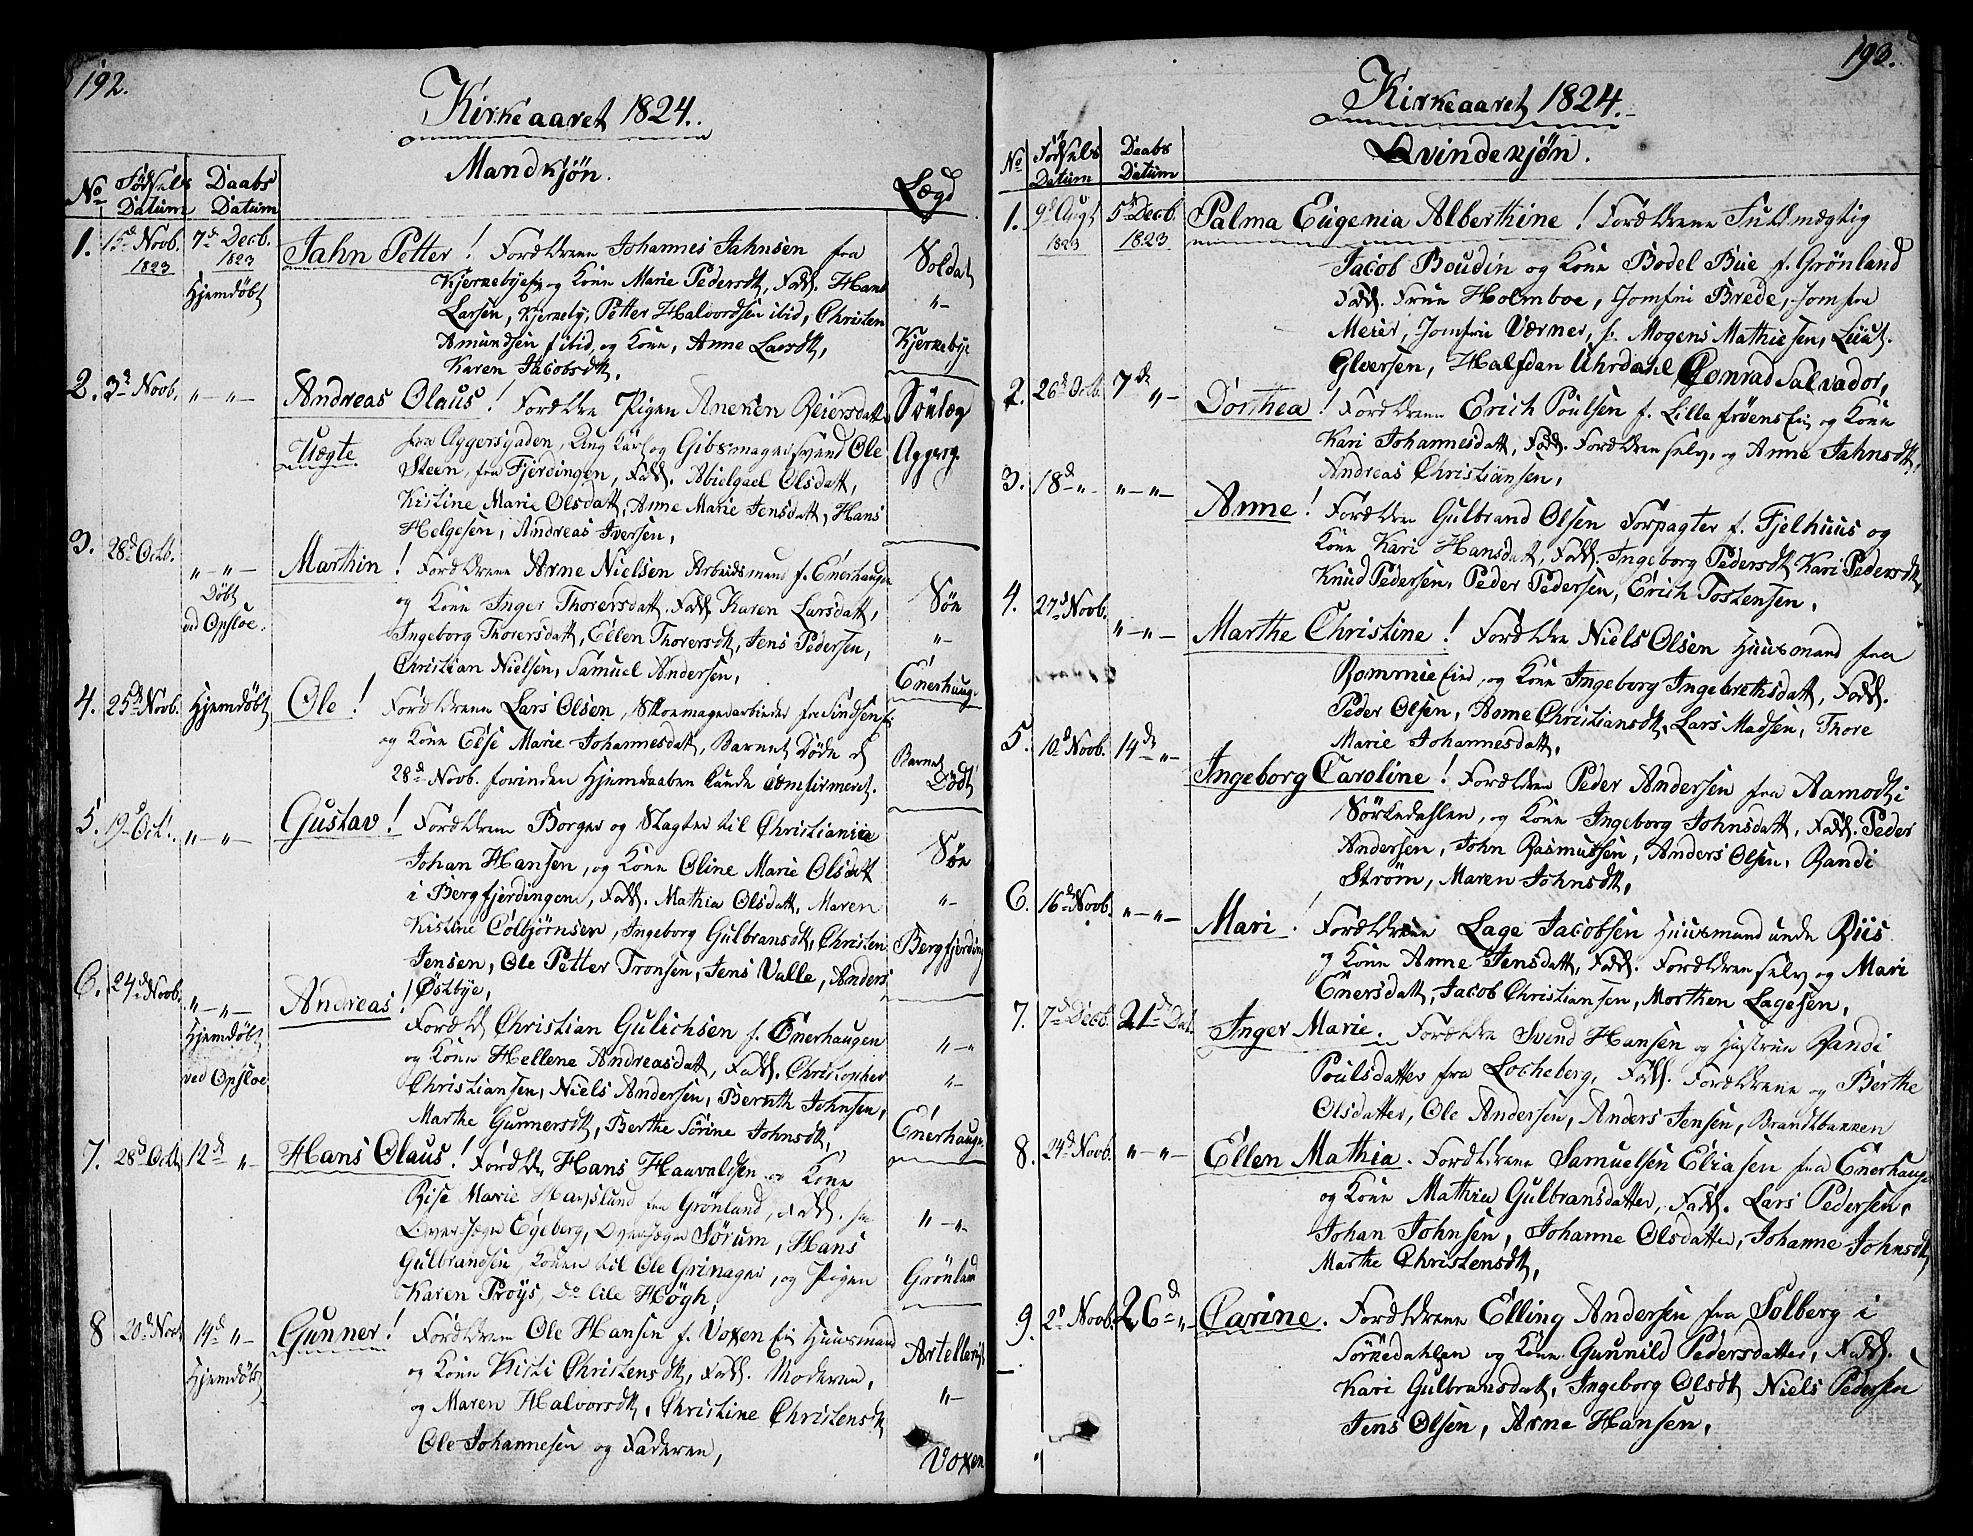 192.
Kirkeaaret 1824.
Mandkjön.
No Födsels Datum Daabs Datum Lægd
1. 15d Novb. 1823 7d Decb. 1823 Hjemdöbt
Jahn Petter! Forældrene Johannes Jahnsen fra
Kjernebye og Kone Marie Pedersdt, Fadd. Hans
Larsen, Kjerneby, Petter Halvordsen ibid, Christen
Amundsen ibid og Kone, Anne Larsdt,
Karen Jacobsdt.
Soldat
"–
Kjernebye
2. 3d Novb. "–"–
Andreas Olaus! Forældre Pigen Aneken Reiersdatter
Uægte.
fra Aggersgaden, Ung Karl og Gibsmagersvend Ole
Steen, fra Fjerdingen, Fadd. Abielgael Olsdatt,
Kistine Marie Olsdatt, Anne Marie Jensdatt, Hans
Helgesen, Andreas Iversen,
Sönlæg
Aggersg.
3. 28d Octb. "–"– Döbt ved Opsloe.
Marthin! Forældrene Arne Nielsen Arbeidsmand f. Enerhaugen
og Kone Inger Thorersdatt. Fadd. Karen Larsdatt,
Ingeborg Thorersdatt, Ellen Thorersdt, Jens Pedersen,
Christian Nielsen, Samuel Andersen,
Sön
"–
Enerhaug.
4. 25d Novb. Hjemdöbt
Ole! Forældrene Lars Olsen, Skoemagerarbeider fra Sindsen
og Kone Else Marie Johannesdatt, Barnet Döde d
28d Novb. forinden Hjemdaaben kunde Comfirmeret.
Barnet
Dödt
5. 19d Oct. "–"–
Gustav! Forældrene Borger og Slagter til Christiania
Johan Hansen, og Kone Oline Marie Olsdatt
i Bergfjerdingen, Fadd. Mathia Olsdatt, Maren
Kistine Colbjörnsen, Ingeborg Gulbransdt, Christen
Jensen, Ole Petter Tronsen, Jens Valle, Anders
Östbye,
Sön
"–
Bergfjerding
6. 24d Novb. "–"– Hjemdöbt ved Opsloe
Andreas!
Foræld Christian Gulichsen f. Enerhaugen
og Kone Hellene Andreasdatt, Fadd. Christopher
Christiansen, Niels Andersen, Bernth Johnsen,
Marthe Gunnersdt, Berthe Sörine Johnsdt,
"–"
"–
Enerhaug.
7. 28d Octb 12d "–
Hans Olaus! Forældre Hans Haavalsen og Kone
Rise Marie Hafslund fra Grönland, Fadd.
Egeberg, Sörum, Hans
Gulbrandsen, Konen til Ole Grinager, og Pigen
Karen Tröys, Do Cile Högh,
"–"–
Grönland
8 20d Novb 14d "– Hjemdöbt
Gunner! Forældrene Ole Hansen f. Voxen Ei Huusmand
og Kone Kisti Christensdt, Fadd. Moderen,
og Maren Halvorsdt, Christine Christensdt,
Ole Johannesen og Faderen,
Artelleriet
"–
Voxen
193.
Kirkeaaret 1824.
Qvindekjön.
No Födsels Datum Daabs Datum
1. 9d Augt 1823 5d Decb. 1823
Palma Eugenia Alberthine! Forældrene Fuldmægtig
Jacob Boudin og Kone Bodel Bue f. Grönland
Fadd. Frue Holmboe, Jomfru Brede, Jomfru
Meier, Jomfru Værner, hr. Mogens Mathiesen, Lieut.
Glversen, Halfdan Uhrdahl Conrad Salvador,
2. 26d Octb. 7d "–
Dorthea! Forældrene Erich Poulsen f. Lille Fröens Ei og Kone
Kari Johannesdatt, Fadd. Forældrene selv, og Anne Jahnsdt,
Andreas Christiansen,
3. 18d "– "–"–
Anne! Forældre Gulbrand Olsen Forpagter f. Fjelhuus og
Kone Kari Hansdatt, Fadd. Ingeborg Pedersdt, Kari Pedersdt,
Knud Pedersen, Peder Pedersen, Erich Tostensen,
4. 27d Novb. "–"–
Marthe Christine! Forældre Niels Olsen Huusmand fra
Rommie Eie, og Kone Ingeborg Ingebrethsdatt, Fadd.
Peder Olsen, Anne Christiansdt, Lars Madsen, Thore
Marie Johannesdatt,
5. 10d Novb. 14d "–
Ingeborg Caroline! Forældrene Peder Andersen fra Aamodt i
Sörkedahlen, og Kone Ingeborg Johnsdatt, Fadd. Peder
Andersen, John Rasmussen, Anders Olsen, Randi
Ström, Maren Johnsdt,
6. 16d Novb. "–"–
Mari! Forældrene Lage Jacobsen Huusmand unde Riis
og Kone Anne Jensdatt, Fadd. Forældrene selv og Mari
Enersdatt, Jacob Christiansen, Morthen Lagesen,
7. 7d Decb. 21d Det.
Inger Marie. Forældre Svend Hansen og Hustrue Randi
Poulsdatter fra Locheberg, Fadd. Forældrene og Berthe
Olsdatter, Ole Andersen, Anders Jensen, Brandtbakken
8. 24d Novb. "–"–
Ellen Mathia. Forældrene Samuelsen Eliasen fra Enerhaug
og Kone Mathia Gulbransdatter, Fadd. Lars Pedersen,
Johan Johnsen, Johanne Olsdatter, Johanne Johnsdt,
Marthe Christensdt,
9. 2d Novb. 26d "–
Carine. Forældrene Elling Andersen fra Solberg i
Sörkedahlen og Kone Gunnild Pedersdatter, Fadd.
Kari Gulbransdatt, Ingeborg Olsdt Niels Pedersen
Jens Olsen, Arne Hansen,